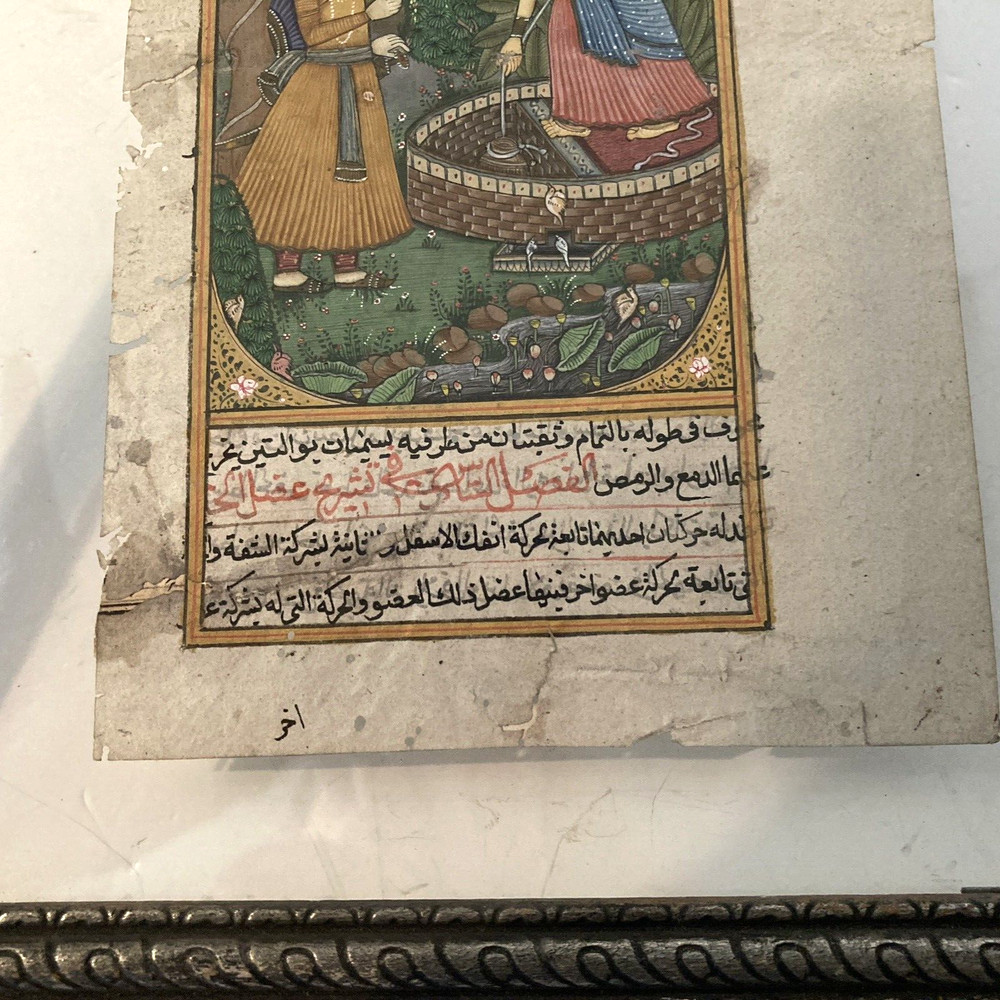 مجوف فى طوله بالتمام وثقبتان من طرفيه يسميان بوالتين تمر
عنهما الدمع والرمص الفصل السادس فى تشريح عضل الخد
الخد له حركتان احديهما تابعة لحركة الفك الاسفل و ثانية بشركة الشفة
تى تابعة لحركة عضو اخر فينها عضل ذلك العضو والحركة التى له بشركة ع
اخر